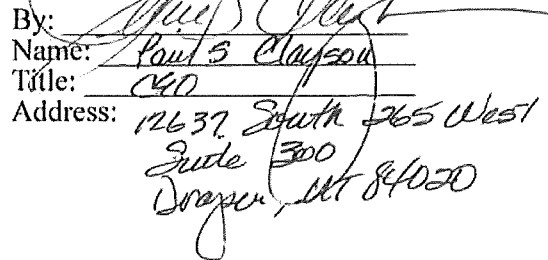 By:
Name: Paul S Clayson
Title: CEO
Address: 12637 South 265 West
Suite 300
Draper, UT 84020